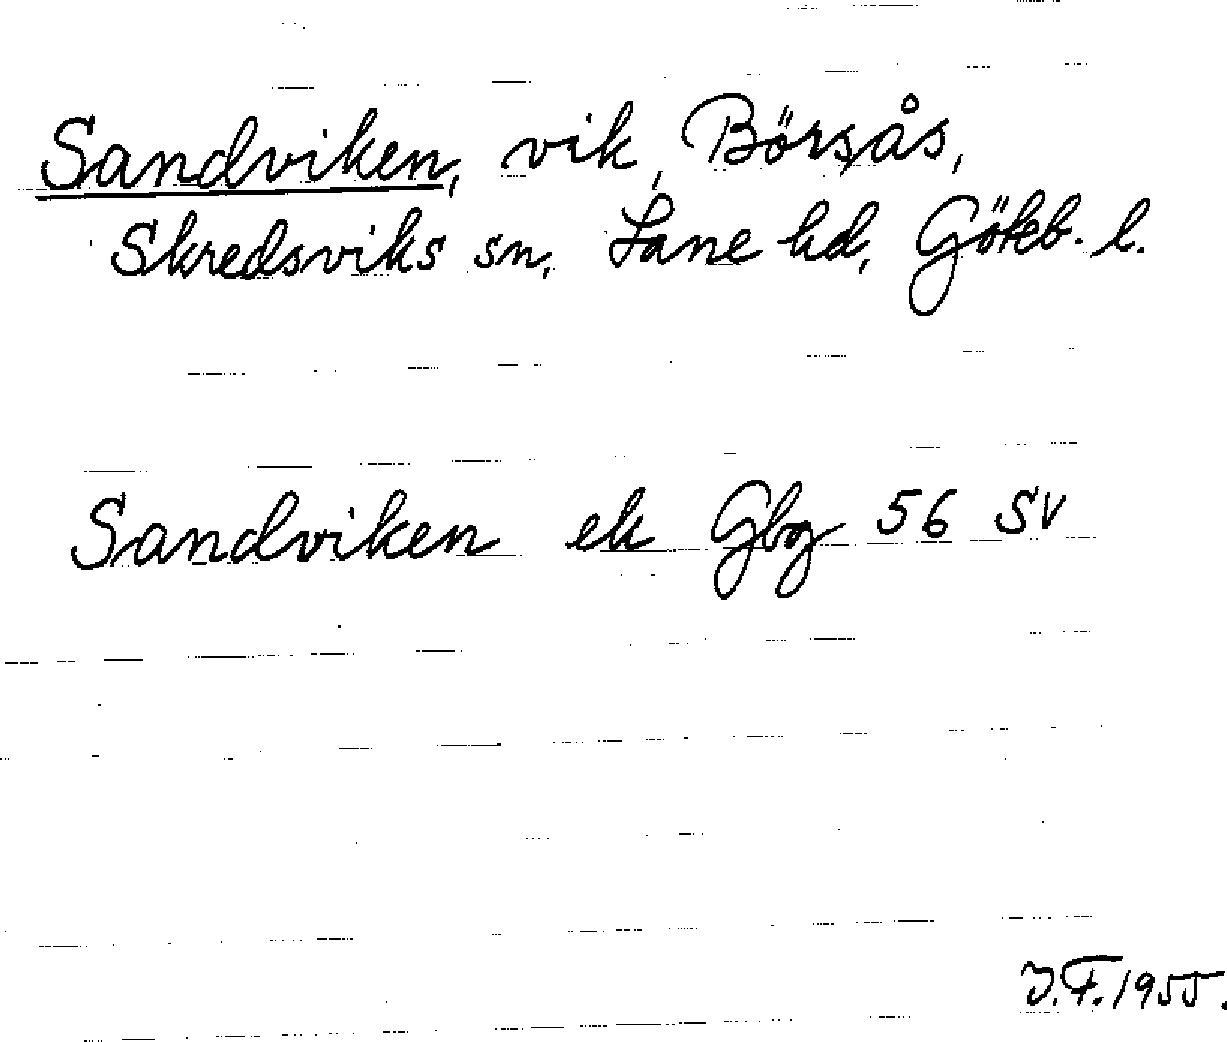 Sandviken, vik, Börsås,
Skredsviks sn, Lane hd, Göteb. l.
Sandviken ek Gbg 56 SV
J.F. 1955.